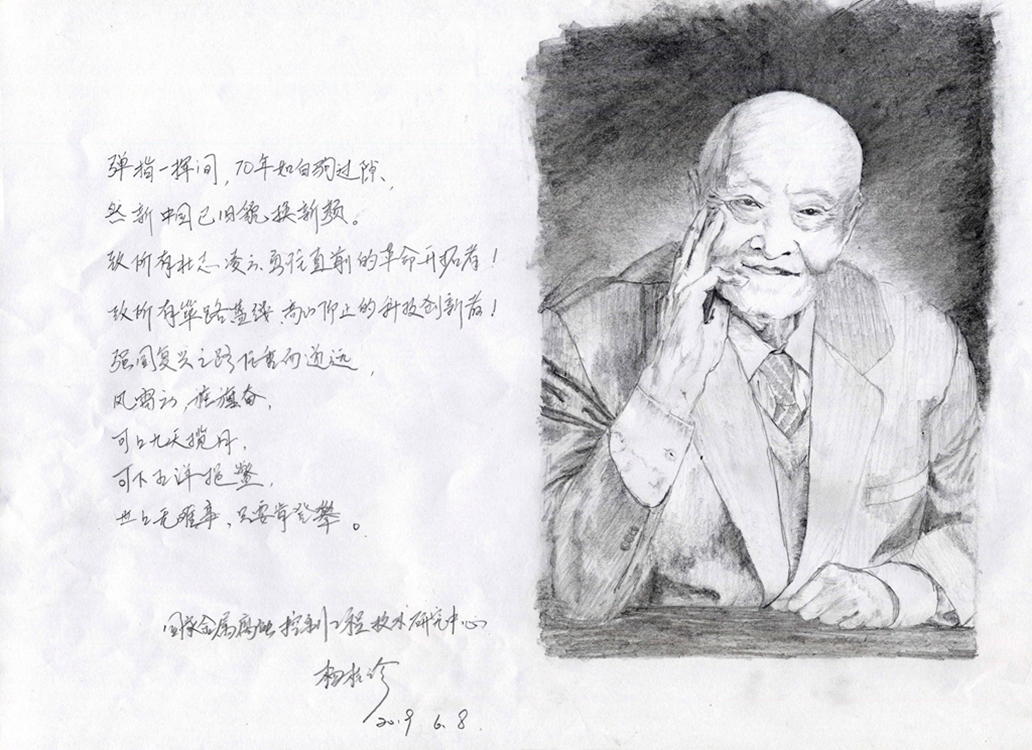 弹指一挥间，70年如白驹过隙、
然新中国已旧貌换新颜。
致所有壮志凌云勇往直前的革命开拓者！
致所有筚路蓝缕 高山仰止的科技创新者！
强国复兴之路任重而道远，
风雷动，旌旗奋，
可上九天揽月，
可下五洋捉鳖，
世上无难事，只要肯登攀。
国家金属腐蚀控制工程技术研究中心
2019.6.8.